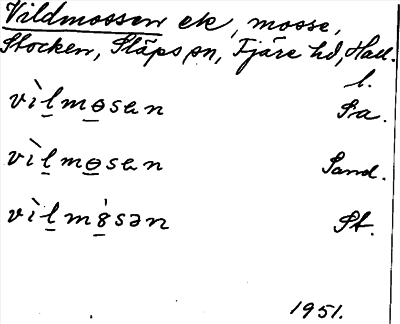 Vildmossen ek, mosse,
Stocken, Släps sn, Fjäre hd, Hall.
l.
vìḻmɵ̱sɐn Sa.
vìḻmɵ̱sɐn Sand.
vìḻm8̱́sən St.
1951.